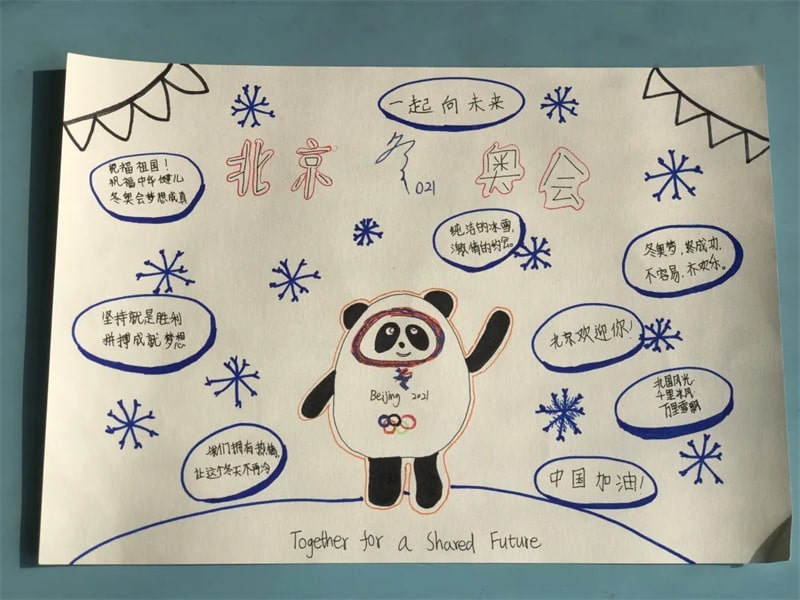 一起向未来
北京冬奥会
021
祝福祖国!
祝福中华健儿
冬奥会梦想成真
纯洁的冰雪,
激情的约会。
冬奥梦,终成功,
不容易.齐欢乐。
坚持就是胜利
拼搏成就梦想
北京欢迎你!
Beijing 2021
北国风光
千里冰
万里雪飘
们拥有热情,
让这个冬天不再冷
中国加油!
Together for a Shared Future